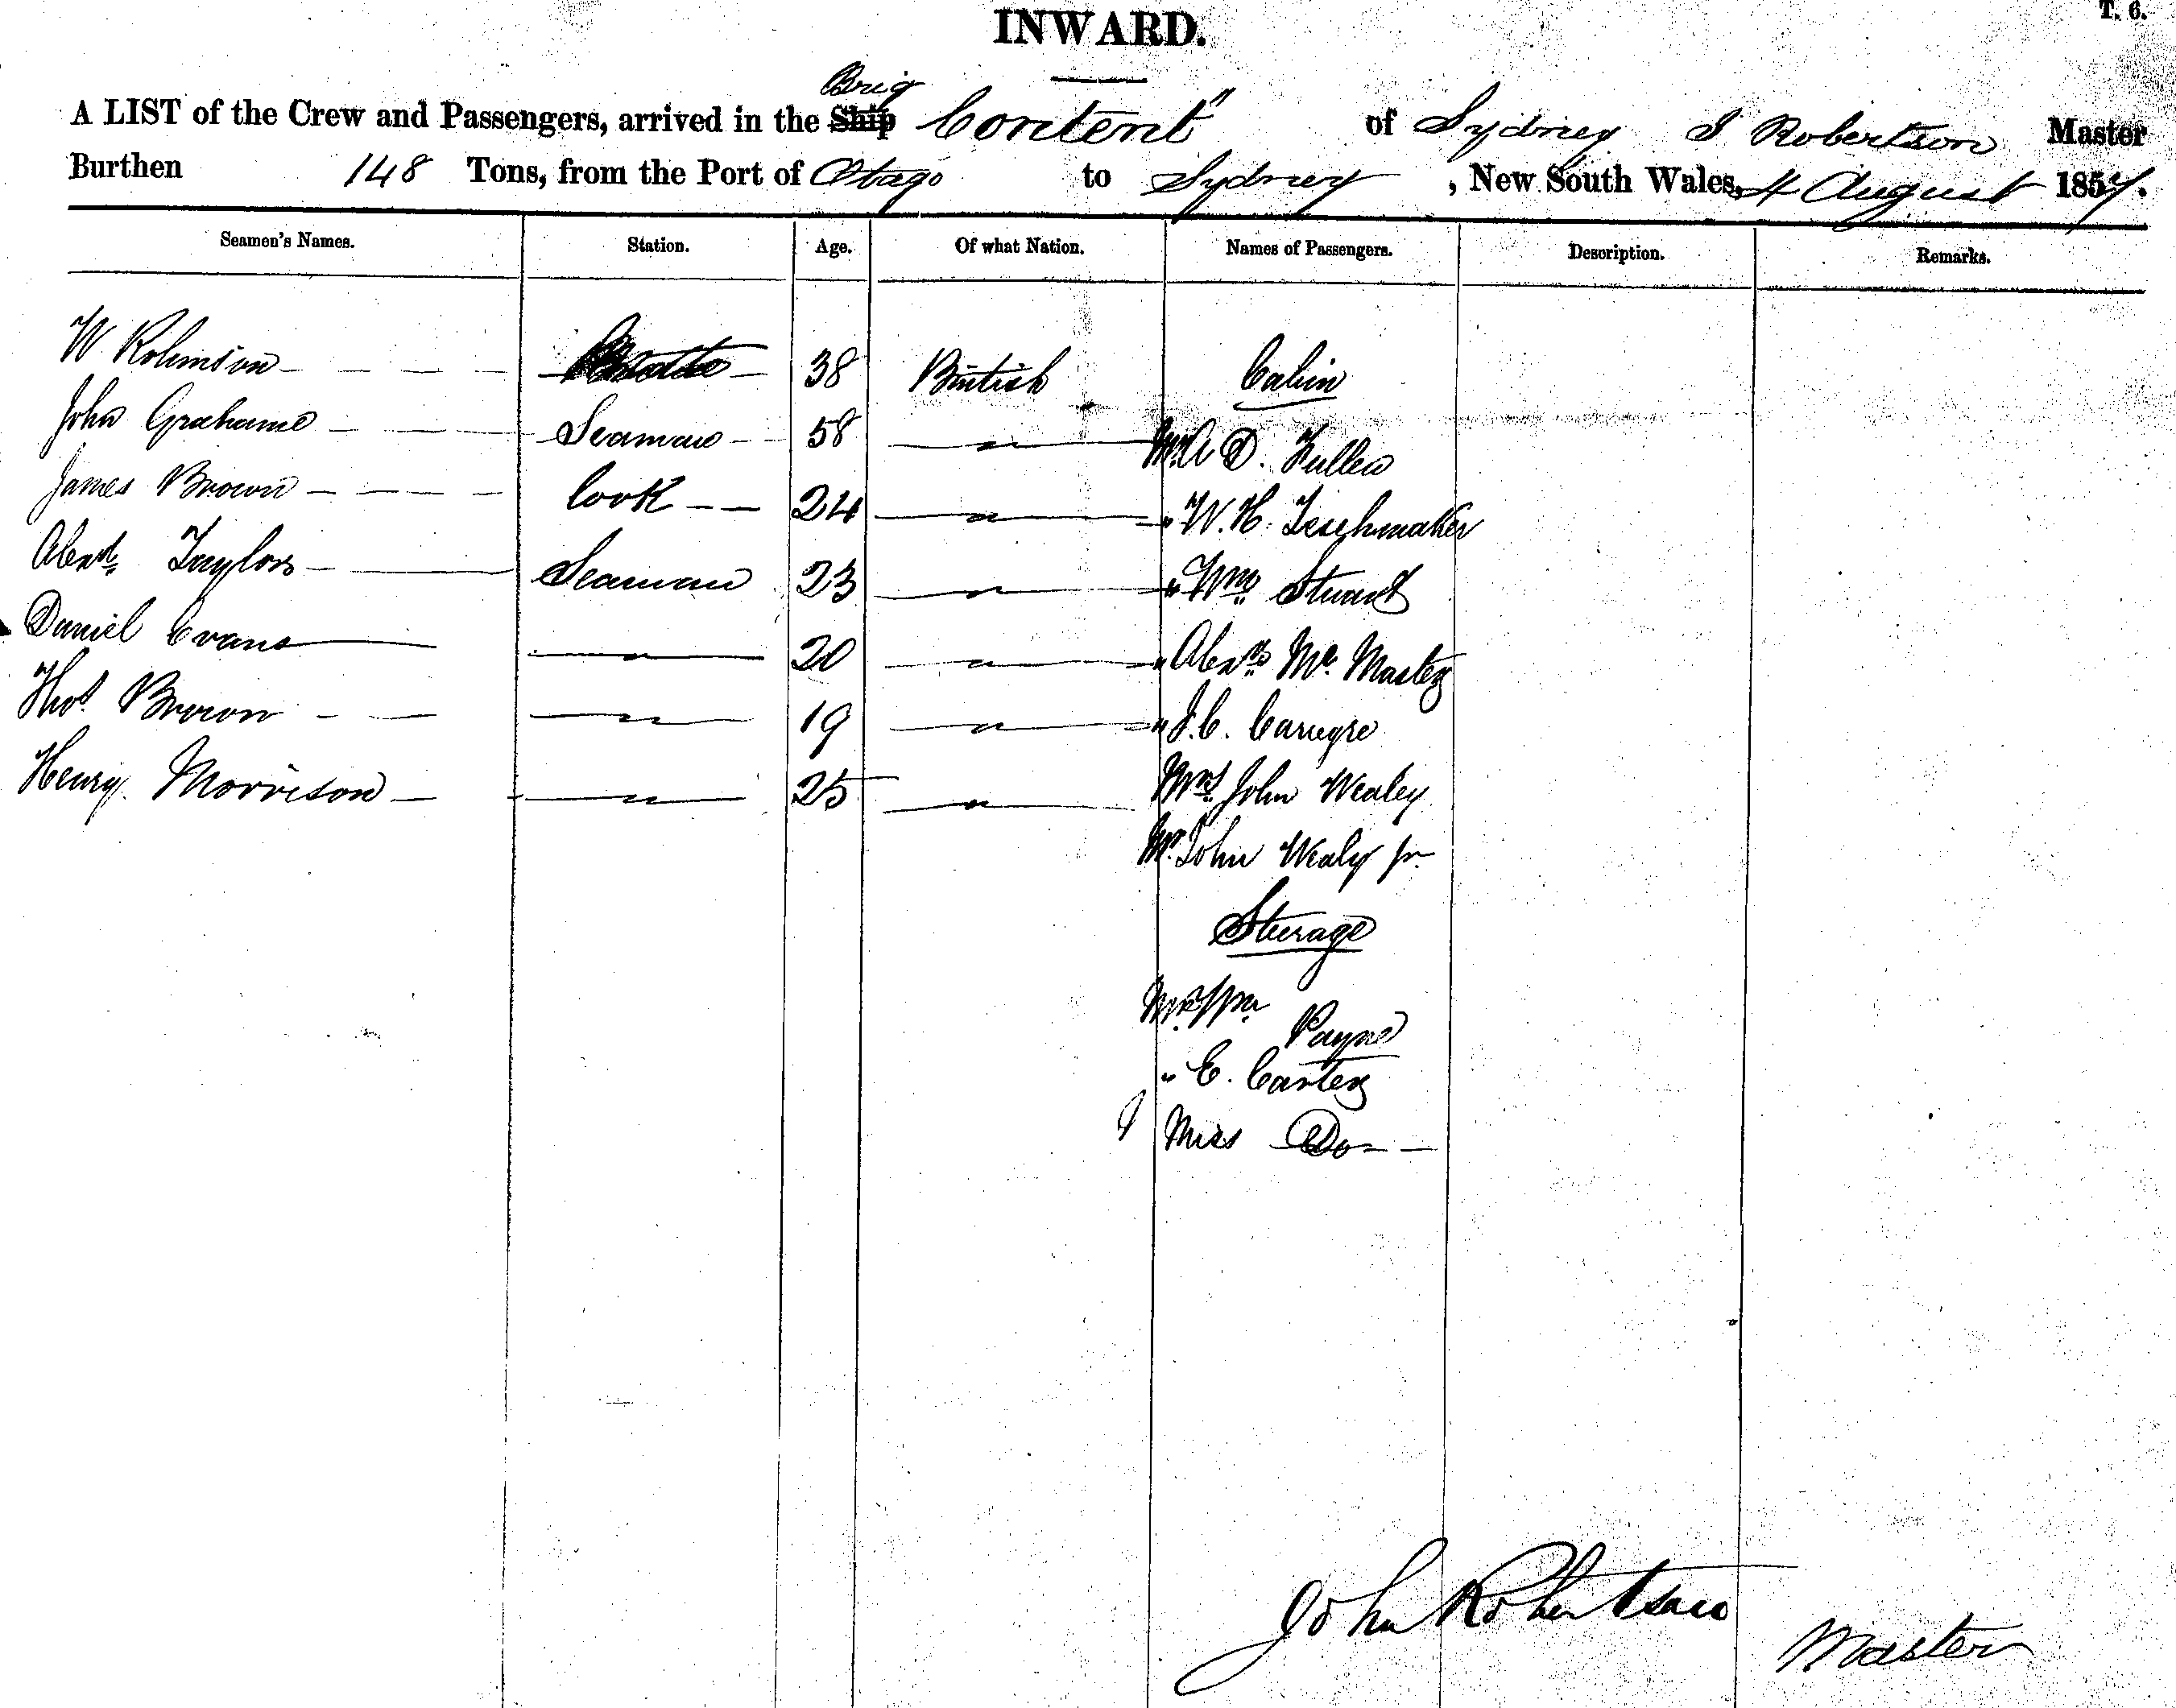 T. 6.
INWARD.
Brig
A LIST of the Crew and Passengers, arrived in the Ship Content" of Sydney J Robertson Master
Burthen 148 Tons, from the Port of Otago to Sydney , New South Wales, 4 August 1857.
Seamen's Names. Station. Age. Of what Nation. Names of Passengers. Description. Remarks.
W Robinson 38 British Cabin
John Grahame Seaman 58 " Mr A D. Fuller
James Brown Cook 24 " " W. H. Teschmaker
Alexr Taylor Seaman 23 " " Wm Stuart
Daniel Evans " 20 " " Alexr Mc Master
Thos Brown " 19 " " J. C. Carnegie
Henry Morrison " 25 " Mrs John Wealey
Mr John Wealy jr
Steerage
Mr Wm Payne
" E. Carter
Miss Do
John Robertson
Master